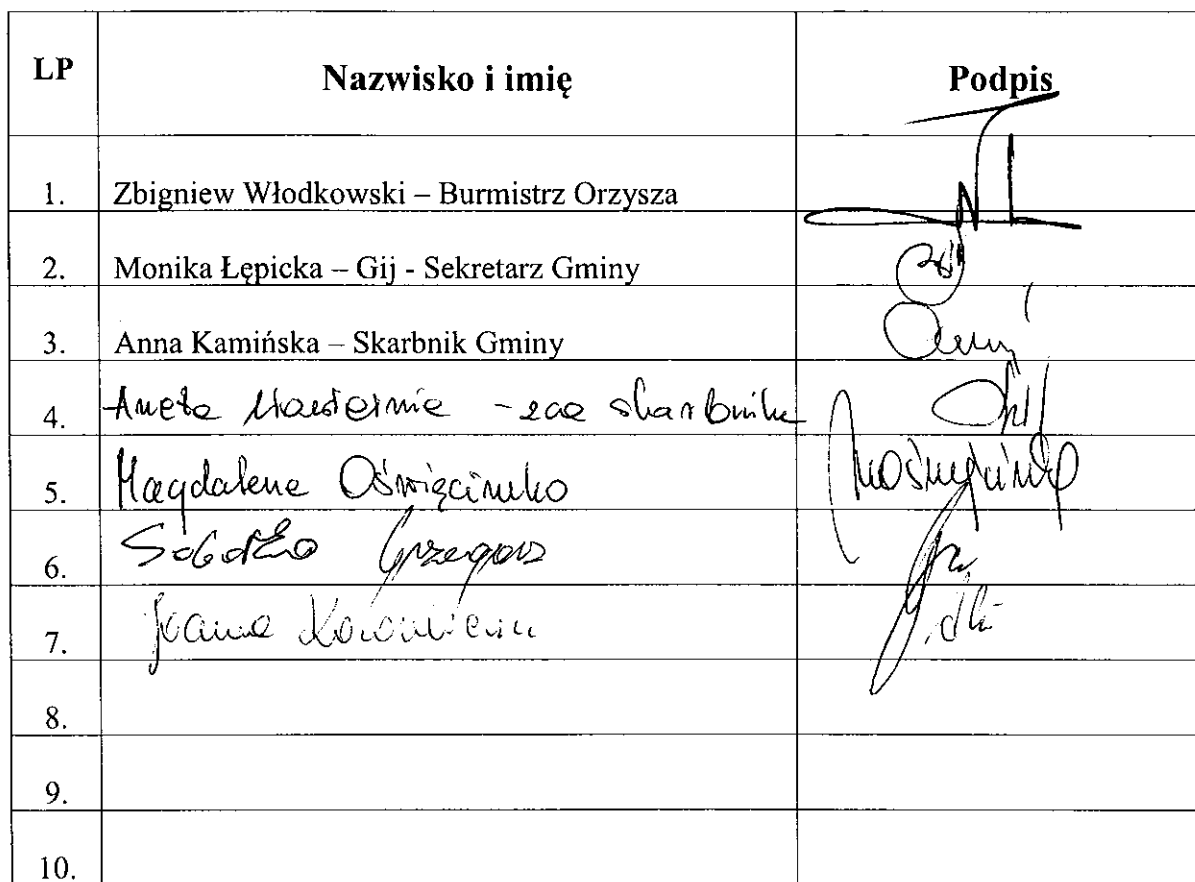 LP Nazwisko i imię Podpis
1. Zbigniew Włodkowski – Burmistrz Orzysza
2. Monika Łępicka – Gij - Sekretarz Gminy
3. Anna Kamińska – Skarbnik Gminy
4. Aneta - zca skarbnika
5. Magdalena Oświęcimko
6. Sobotko Grzegorz
7. Joanna
8.
9.
10.